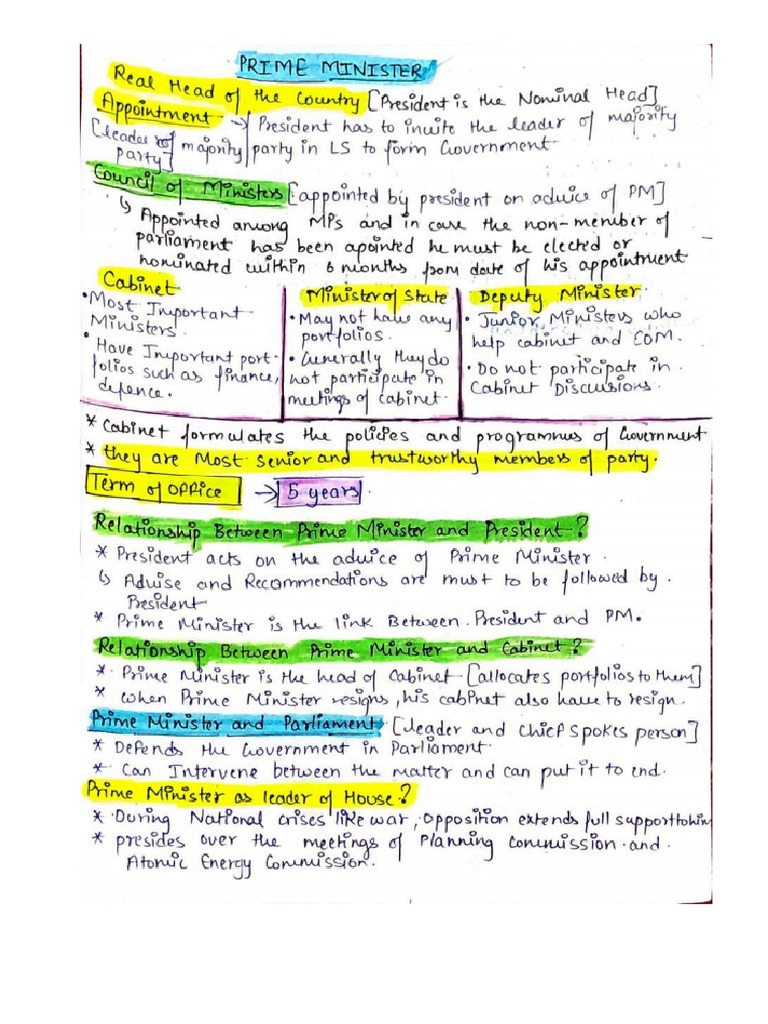 PRIME MINISTER
Real Head of the Country [President is the Nominal Head]
Appointment → President has to invite the leader of majority
[leader of majority party in LS to form Government
party]
Council of Ministers [appointed by president on advice of PM]
↳ Appointed among MPs and in case the non-member of
parliament has been apointed he must be elected or
nominated within 6 months from date of his appointment
Cabinet
• Most Important
Ministers.
• Have Important port-
folios such as finance,
defence.
Minister of State
• May not have any
portfolios.
• Generally they do
not participate in
meetings of cabinet.
Deputy Minister.
• Junior Ministers who
help cabinet and COM.
• Do not participate in
Cabinet Discussions.
* Cabinet formulates the policies and programmes of Government
* they are Most senior and trustworthy members of party.
Term of Office → 5 years.
Relationship Between Prime Minister and President?
* President acts on the advice of Prime Minister.
↳ Advise and Recommendations are must to be followed by.
President
* Prime Minister is the link Between President and PM.
Relationship Between Prime Minister and Cabinet?
* Prime Minister is the head of Cabinet [allocates portfolios to them]
* when Prime Minister resigns, his cabinet also have to resign.
Prime Minister and Parliament [leader and chief spokes person]
* Defends the Government in Parliament
* Can Intervene between the matter and can put it to end.
Prime Minister as leader of House?
* During National crises like war, opposition extends full support to him
* presides over the meetings of Planning Commission and
Atomic Energy Commission.